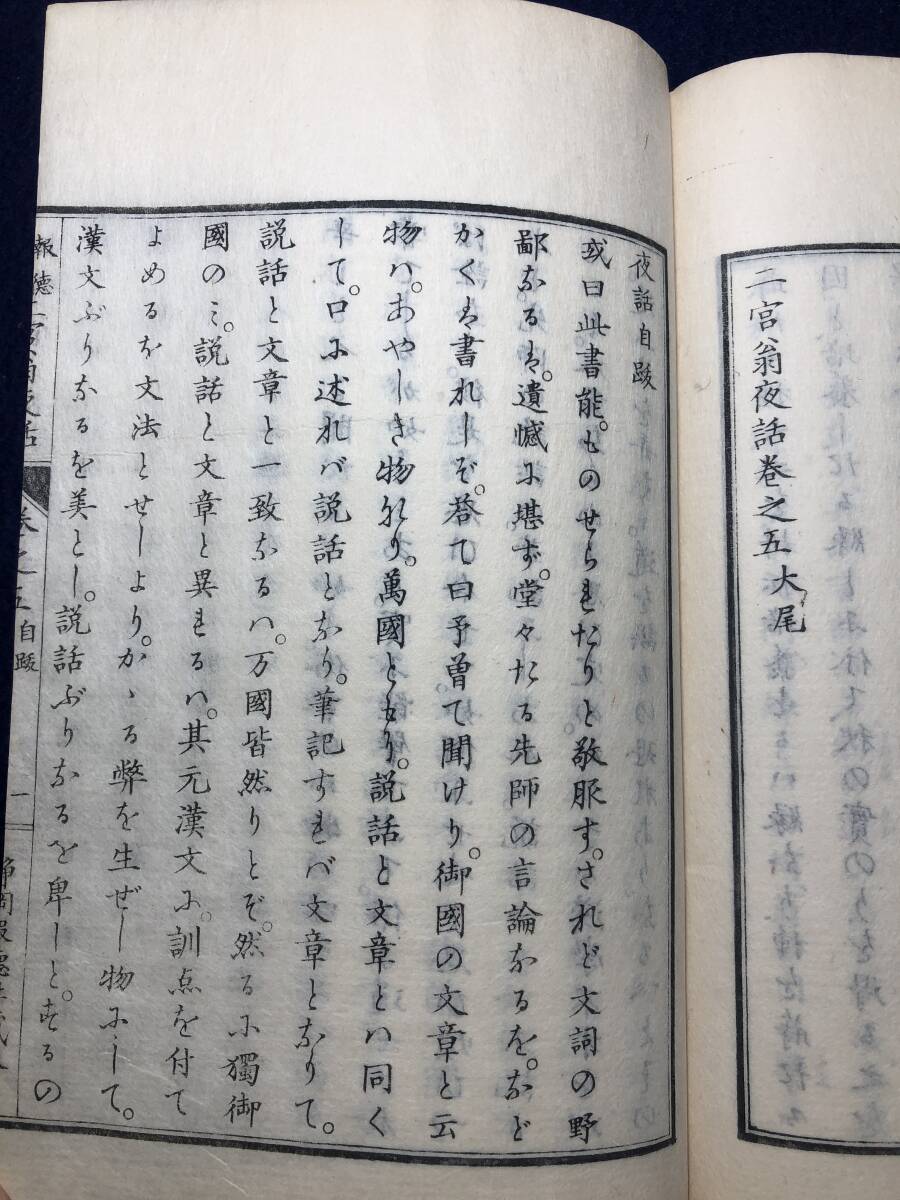 二宮翁夜話巻之五大尾
夜話自跋
或曰此書能。ものせられたりと敬服す。されど文詞の野
鄙なるは。遺憾に堪ず。堂々たる先師の言論なるを。など
かくは書れしぞ。答て曰予曽て聞けり。御國の文章と云
物ハ。あやしき物なり。萬國ともに。説話と文章とハ同く
して。口に述れバ説話となり。筆記すれバ文章となりて。
説話と文章と一致なるハ。万國皆然りとぞ。然るに獨御
國のミ。説話と文章と異れるハ。其元漢文に。訓点を付て
よめるを文法とせしより。かゝる弊を生ぜし物にして。
漢文ぶりなるを美とし。説話ぶりなるを卑しと。するの
報徳 二宮翁夜話 巻之五 自跋 一